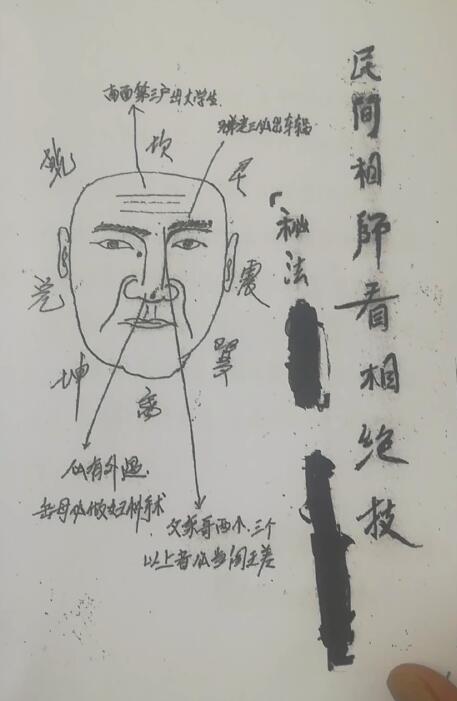 民間相師看相绝技
「秘法
南面第三户出大学生
兄弟老三必出车祸
乾
坎
艮
兑
震
坤
离
巽
必有外遇.
岳母必做妇科手术
父亲哥两个.三个
以上者必当阎王差